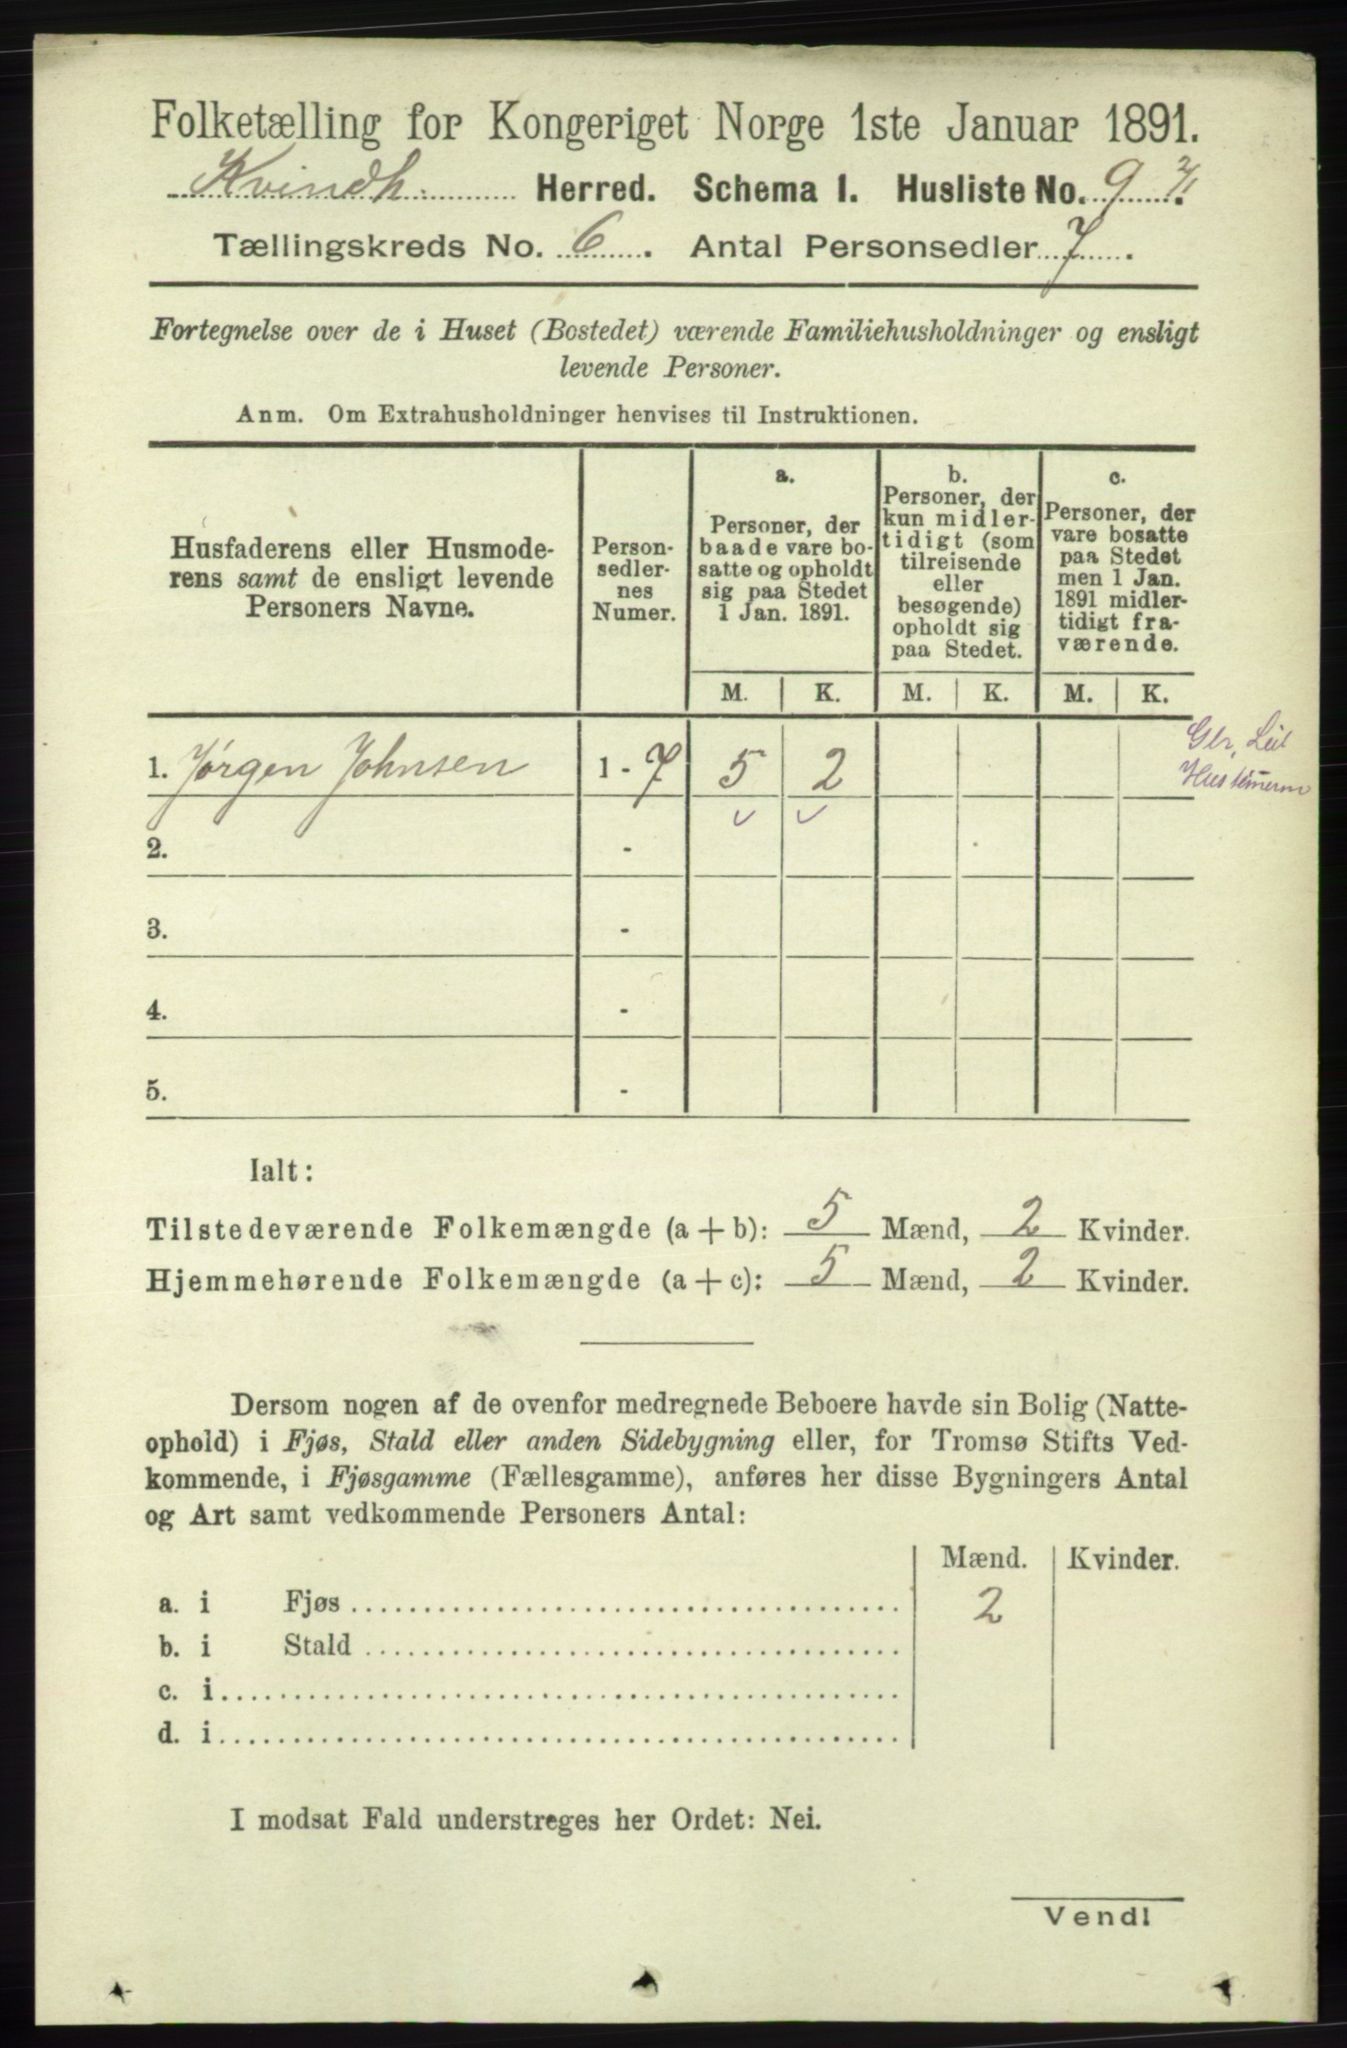 Folketælling for Kongeriget Norge 1ste Januar 1891.
Kvindh. Herred. Schema 1. Husliste No. 9
Tællingskreds No. 6. Antal Personsedler 7.
Fortegnelse over de i Huset (Bostedet) værende Familiehusholdninger og ensligt
levende Personer.
Anm. Om Extrahusholdninger henvises til Instruktionen.
Husfaderens eller Husmode-
rens samt de ensligt levende
Personers Navne.
Person-
sedler-
nes
Numer.
a.
Personer, der
baade vare bo-
satte og opholdt
sig paa Stedet
1 Jan. 1891.
b.
Personer, der
kun midler-
tidigt (som
tilreisende
eller
besøgende)
opholdt sig
paa Stedet.
c.
Personer, der
vare bosatte
paa Stedet
men 1 Jan.
1891 midler-
tidigt fra-
værende.
M. K. M. K. M. K.
1. Jørgen Johnsen 1 - 7 5 2
2. -
3. -
4. -
5. -
Ialt:
Tilstedeværende Folkemængde (a + b): 5 Mænd, 2 Kvinder.
Hjemmehørende Folkemængde (a + c): 5 Mænd, 2 Kvinder.
Dersom nogen af de ovenfor medregnede Beboere havde sin Bolig (Natte-
ophold) i Fjøs, Stald eller anden Sidebygning eller, for Tromsø Stifts Ved-
kommende, i Fjøsgamme (Fællesgamme), anføres her disse Bygningers Antal
og Art samt vedkommende Personers Antal:
Mænd. Kvinder.
a. i Fjøs 2
b. i Stald
c. i
d. i
I modsat Fald understreges her Ordet: Nei.
Vend!